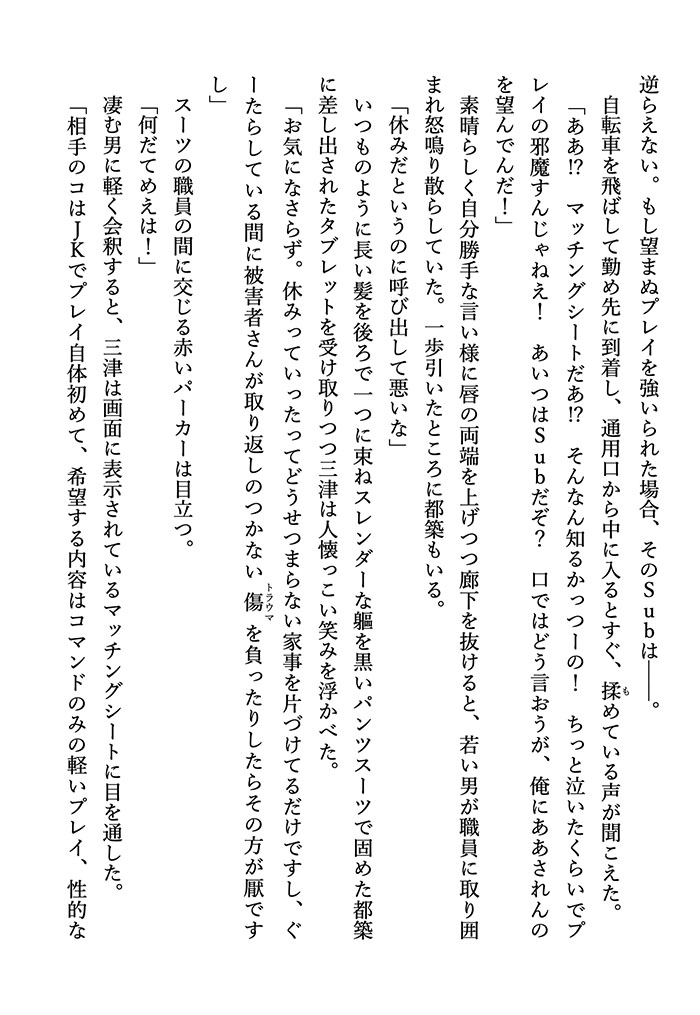 逆らえない。もし望まぬプレイを強いられた場合、そのＳｕｂは――。
　自転車を飛ばして勤め先に到着し、通用口から中に入るとすぐ、揉めている声が聞こえた。
「ああ⁉　マッチングシートだあ⁉　そんなん知るかっつーの！　ちっと泣いたくらいでプ
レイの邪魔すんじゃねえ！　あいつはＳｕｂだぞ？　口ではどう言おうが、俺にああされんの
を望んでんだ！」
　素晴らしく自分勝手な言い様に唇の両端を上げつつ廊下を抜けると、若い男が職員に取り囲
まれ怒鳴り散らしていた。一歩引いたところに都築もいる。
「休みだというのに呼び出して悪いな」
　いつものように長い髪を後ろで一つに束ねスレンダーな軀を黒いパンツスーツで固めた都築
に差し出されたタブレットを受け取りつつ三津は人懐っこい笑みを浮かべた。
「お気になさらず。休みっていったってどうせつまらない家事を片づけてるだけですし、ぐ
ーたらしている間に被害者さんが取り返しのつかない傷を負ったりしたらその方が厭です
し」
　スーツの職員の間に交じる赤いパーカーは目立つ。
「何だてめえは！」
　凄む男に軽く会釈すると、三津は画面に表示されているマッチングシートに目を通した。
「相手のコはＪＫでプレイ自体初めて、希望する内容はコマンドのみの軽いプレイ、性的な
も
トラウマ